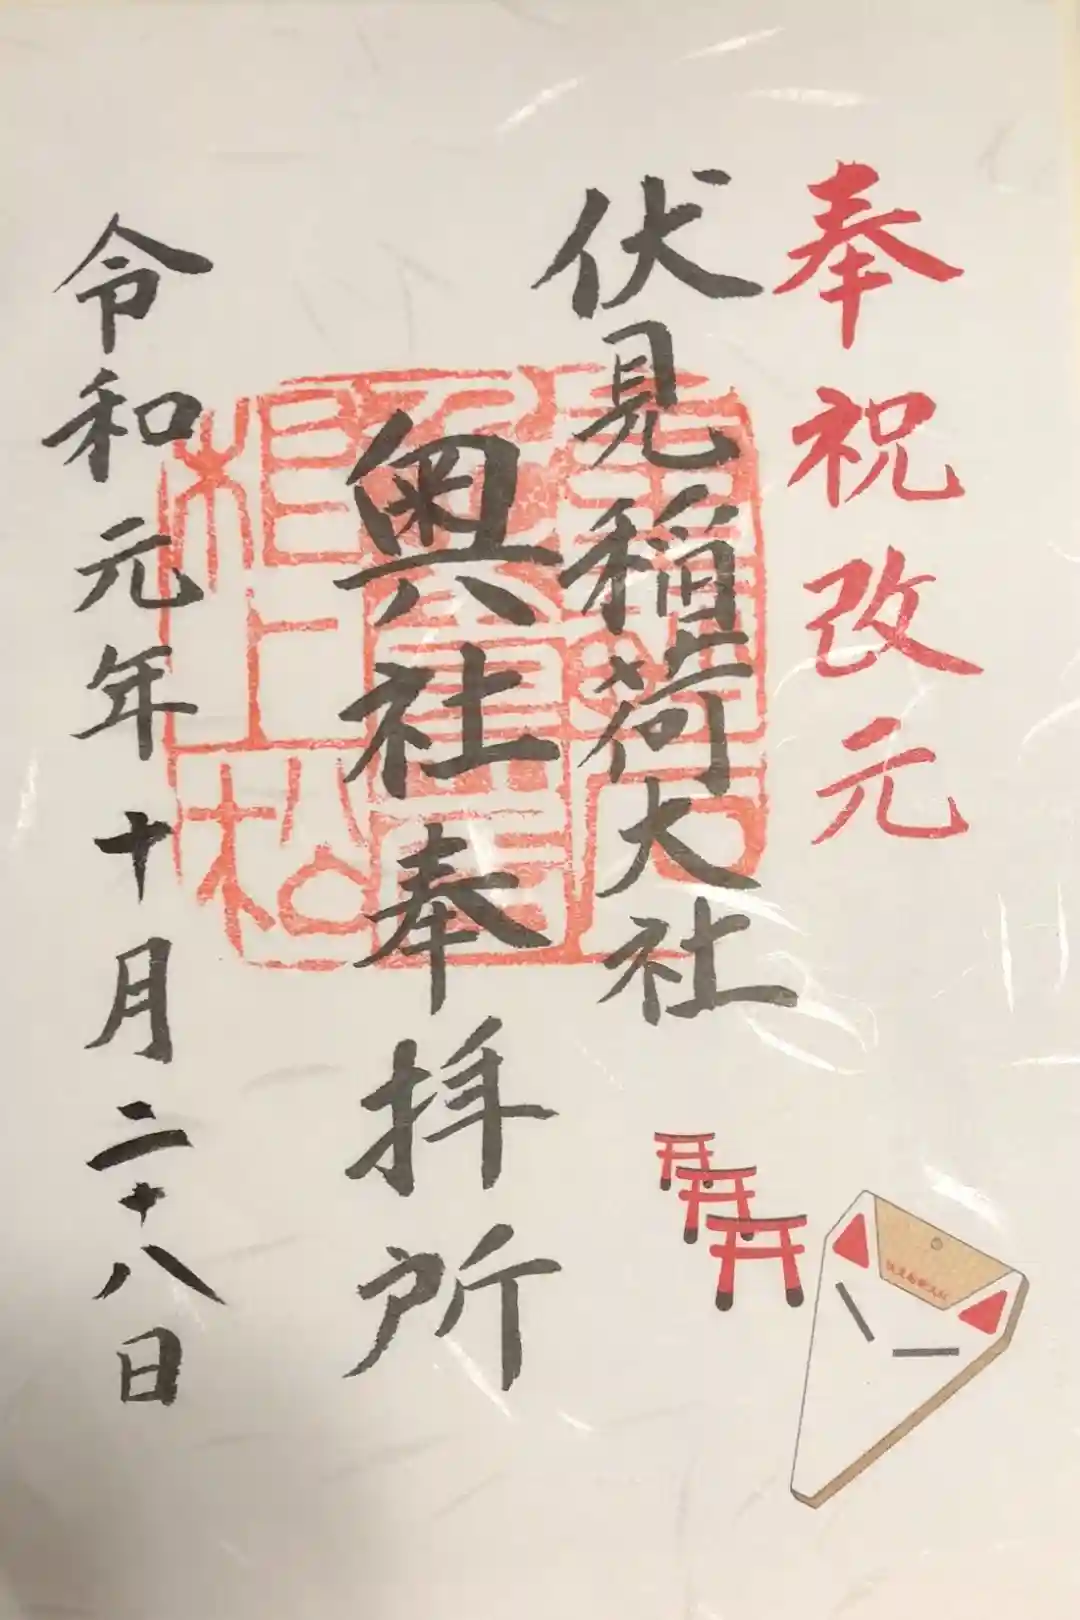 奉祝改元
伏見稲荷大社
奥社奉拝所
令和元年十月二十八日